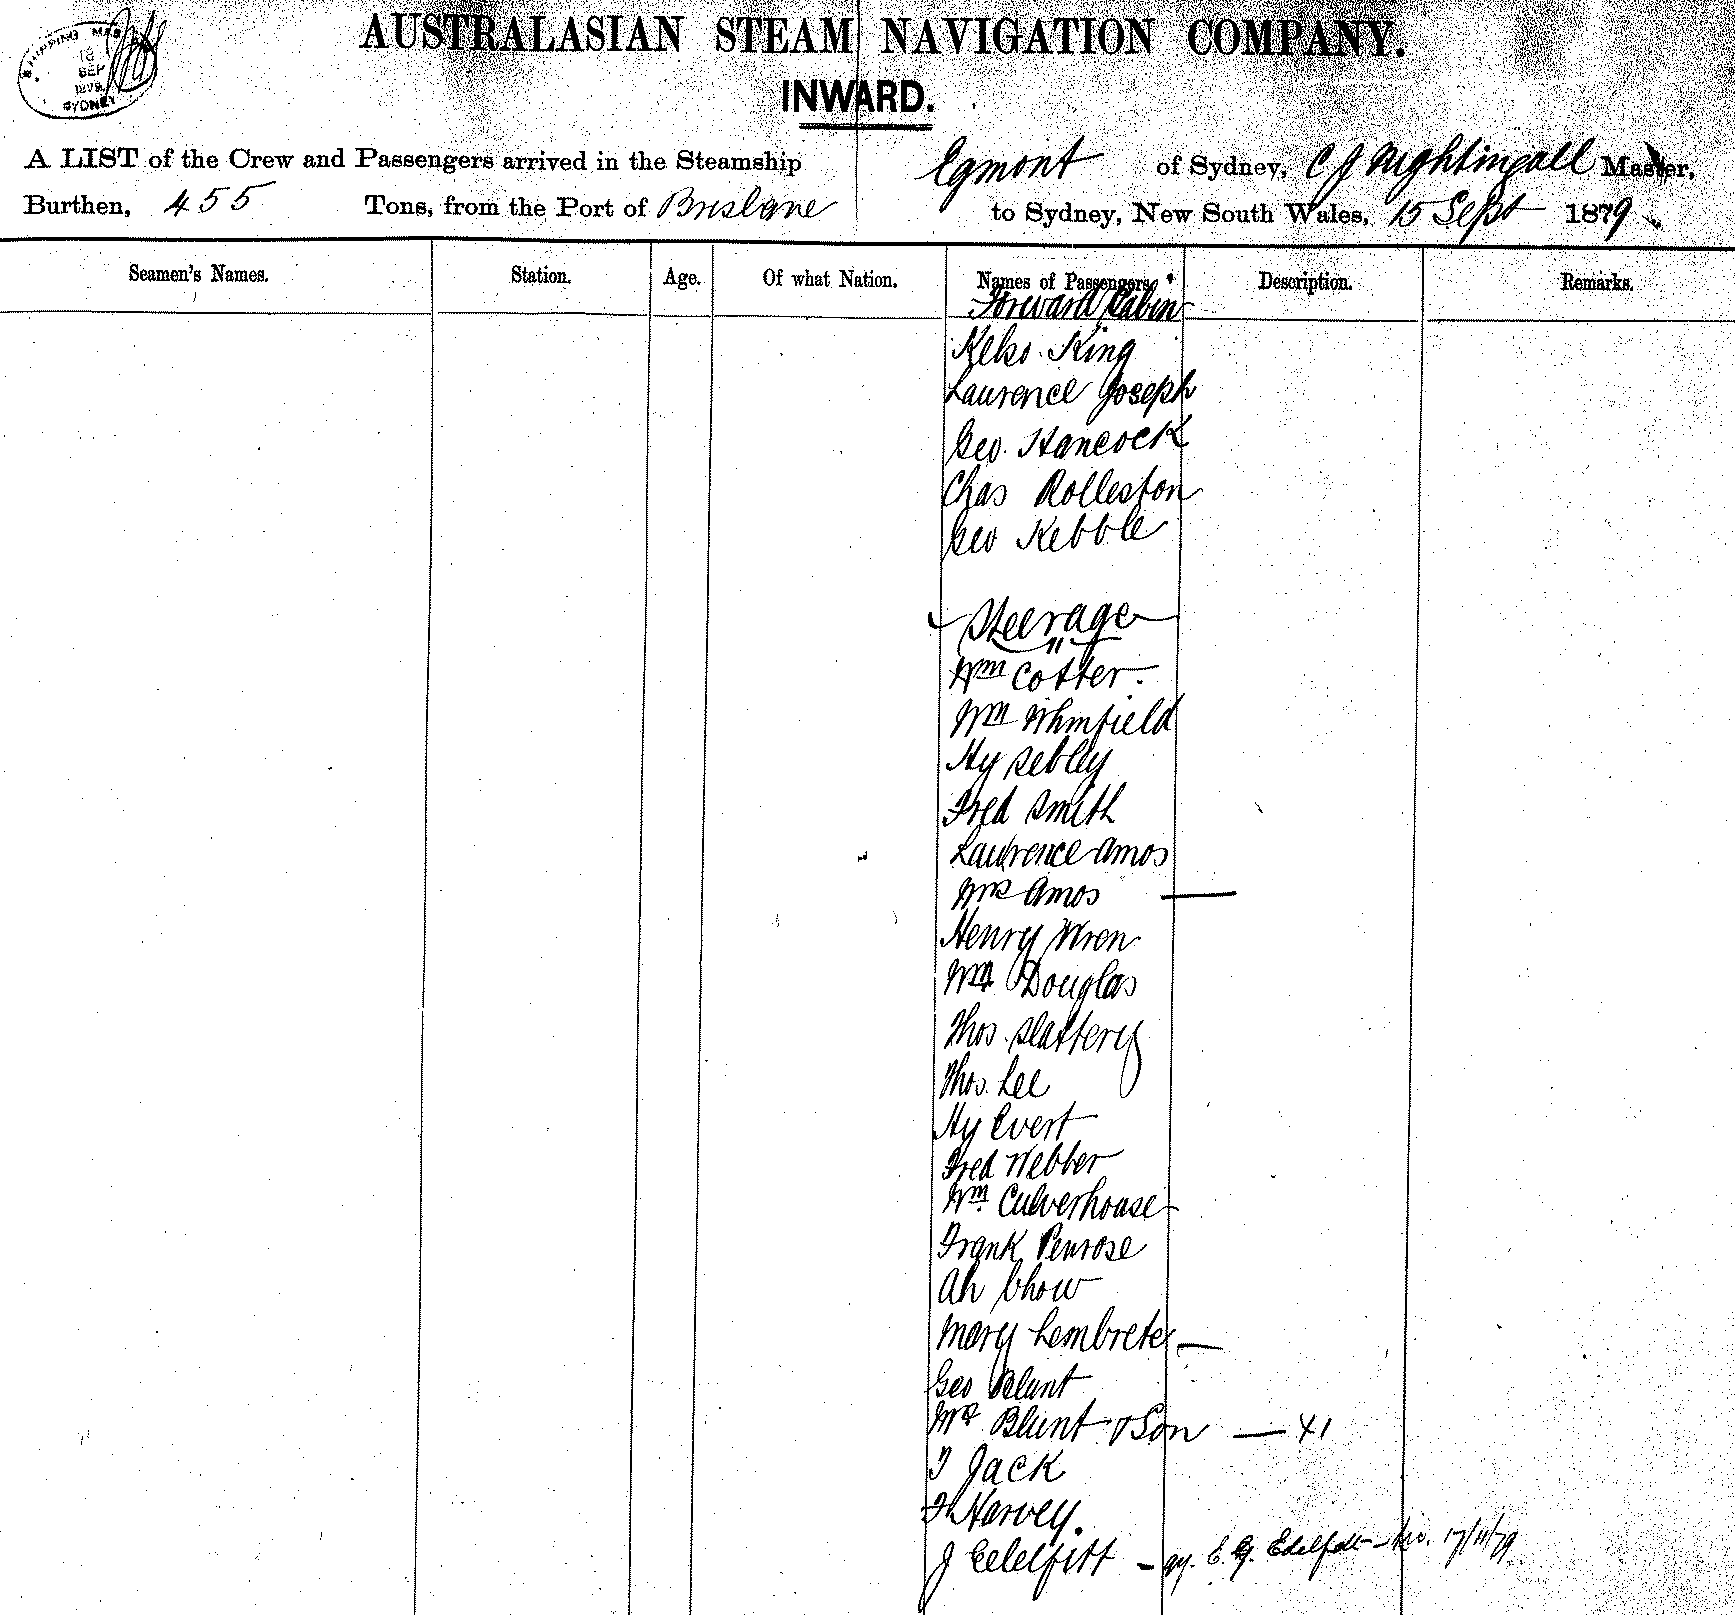 SHIPPING MAS
16
SEP
1879
SYDNEY
AUSTRALASIAN STEAM NAVIGATION COMPANY.
INWARD.
A LIST of the Crew and Passengers arrived in the Steamship Egmont of Sydney, C J Nightingall Master,
Burthen, 455 Tons, from the Port of Brisbane to Sydney, New South Wales, 15 Sept 1879
Seamen's Names. Station. Age. Of what Nation. Names of Passengers. Description. Remarks.
Forward Cabin
Kelso King
Laurence Joseph
Geo. Hancock
Chas Rolleston
Geo Kebble
Steerage
Wm Cotter
Wm Whmfield
Hy Sebley
Fred Smith
Laurence Amos
Mrs Amos
Henry Wren
Douglas
Thos. Slattery
Thos. Lee
Hy Evert
Fred Webber
Wm Culverhouse
Frank Penrose
Ah Chow
Mary Lembrete
Geo Blunt
Mrs Blunt & Son — X1
T Jack
Harvey.
J Eelelfitt — E. G. Edelfelt 17/11/79